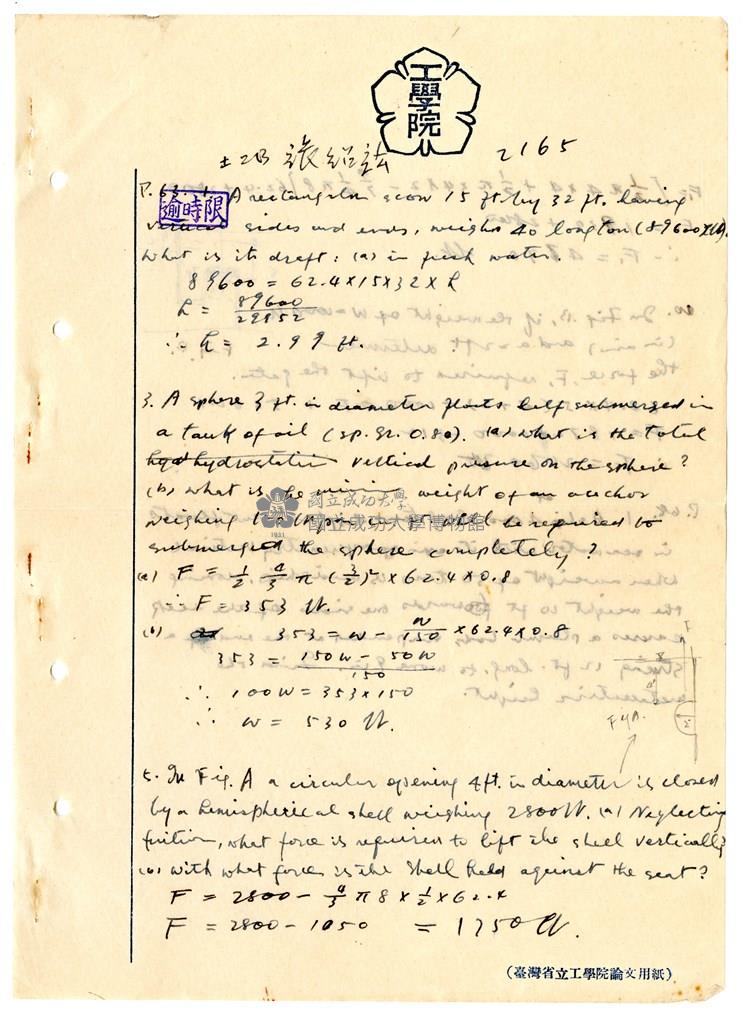 工學院
土四 張紹誌 2165
P. 63. 1. A rectangular scow 15 ft. by 32 ft. having
逾時限
vertical sides and ends, weighs 40 long ton (89600
What is its draft: (a) in fresh water.
89600 = 62.4×15×32×h
h = 89600/29952
∴ h = 2.99 ft.
3. A sphere 3 ft. in diameter floats half submerged in
a tank of oil (sp. gr. 0.80). (a) what is the total
hyd hydrostatic vertical pressure on the sphere?
(b) what is the weight of an anchor
weighing be required to
submerged the sphere completely?
(a) F = 1/2 4/3 π (3/2)² × 62.4 × 0.8
∴ F = 353 lb.
(b) 353 = w − w/150 × 62.4×0.8
353 = 150w − 50w / 150
∴ 100w = 353×150
∴ w = 530 lb.
Fig A.
5. In Fig. A a circular opening 4 ft. in diameter is closed
by a hemispherical shell weighing 2800 lb. (a) Neglecting
friction, what force is required to lift the shell vertically?
(b) with what force is the shell held against the seat?
F = 2800 − 4/3 π 8 × 1/2 × 62.4
F = 2800 − 1050 = 1750 lb.
國立成功大學
國立成功大學博物館
1931
(臺灣省立工學院論文用紙)